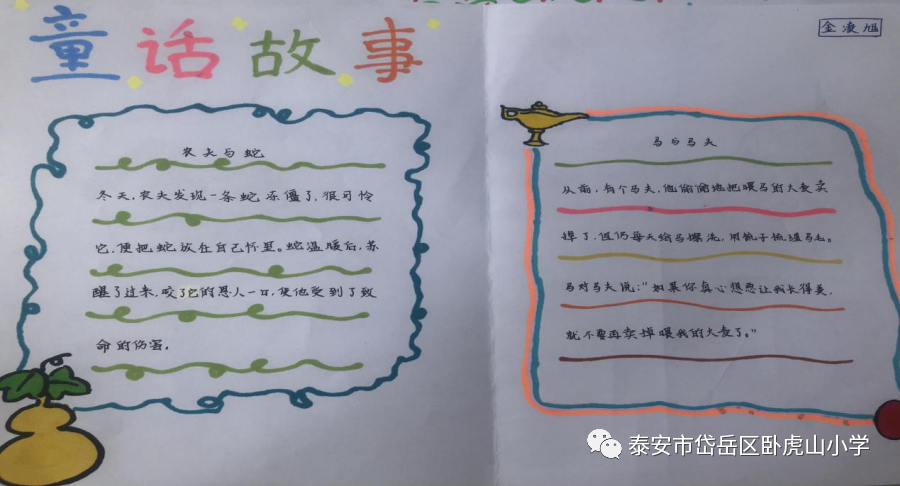 童话故事
金凌旭
农夫与蛇
冬天，农夫发现一条蛇冻僵了，很可怜
它，便把蛇放在自己怀里。蛇温暖后，苏
醒了过来，咬了它的恩人一口，使他受到了致
命的伤害。
马与马夫
从前，有个马夫，他偷偷地把喂马的大麦卖
掉了，但仍每天给马擦洗，用篦子梳理马毛。
马对马夫说：“如果你真心想要让我长得美，
就不要再卖掉喂我的大麦了。”
泰安市岱岳区卧虎山小学